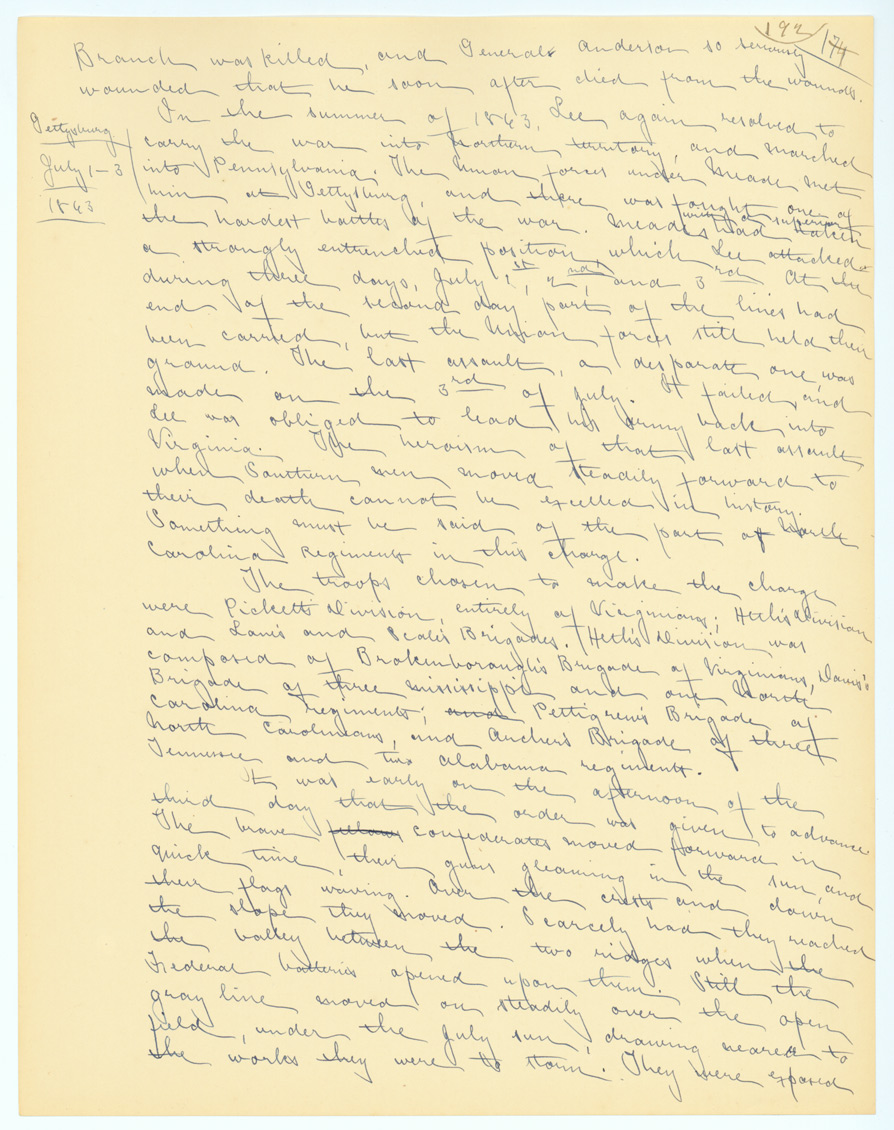 192
174
Branch was killed, and General Anderson so seriously
wounded that he soon after died from the wounds.
In the summer of 1863, Lee again resolved to
Gettysburg
July 1-3
1863
carry the war into Northern territory, and marched
into Pennsylvania. The Union forces under Meade met
him at Gettysburg, and there was fought one of
the hardest battles of the war. Meade had taken
a strongly entrenched position, which Lee attacked
during three days, July 1st, 2nd, and 3rd. At the
end of the second day part of the lines had
been carried, but the Union forces still held their
ground. The last assault, a desparate one, was
made on the 3rd of July. It failed, and
Lee was obliged to lead his army back into
Virginia. The heroism of that last assault,
when Southern men moved steadily forward to
their death cannot be excelled in history.
Something must be said of the part of North
Carolina regiments in this charge.
The troops chosen to make the charge
were Pickett's Division, entirely of Virginians; Heth's Division
and Lane's and Scale's Brigades. Heth's Division was
composed of Brokenborough's Brigade of Virginians, Davis's
Brigade of three Mississippi and one North
Carolina regiments; and Pettigrew's Brigade of
North Carolinians, and Archer's Brigade of three
Tennessee and two Alabama regiments.
It was early on the afternoon of the
third day that the order was given to advance.
The brave confederates moved forward in
quick time, their guns gleaming in the sun, and
their flags waving. Over the crests and down
the slope they moved. Scarcely had they reached
the valley between the two ridges when the
Federal batteries opened upon them. Still the
gray line moved on steadily over the open
field, under the July sun, drawing nearer to
the works they were to storm. They were exposed